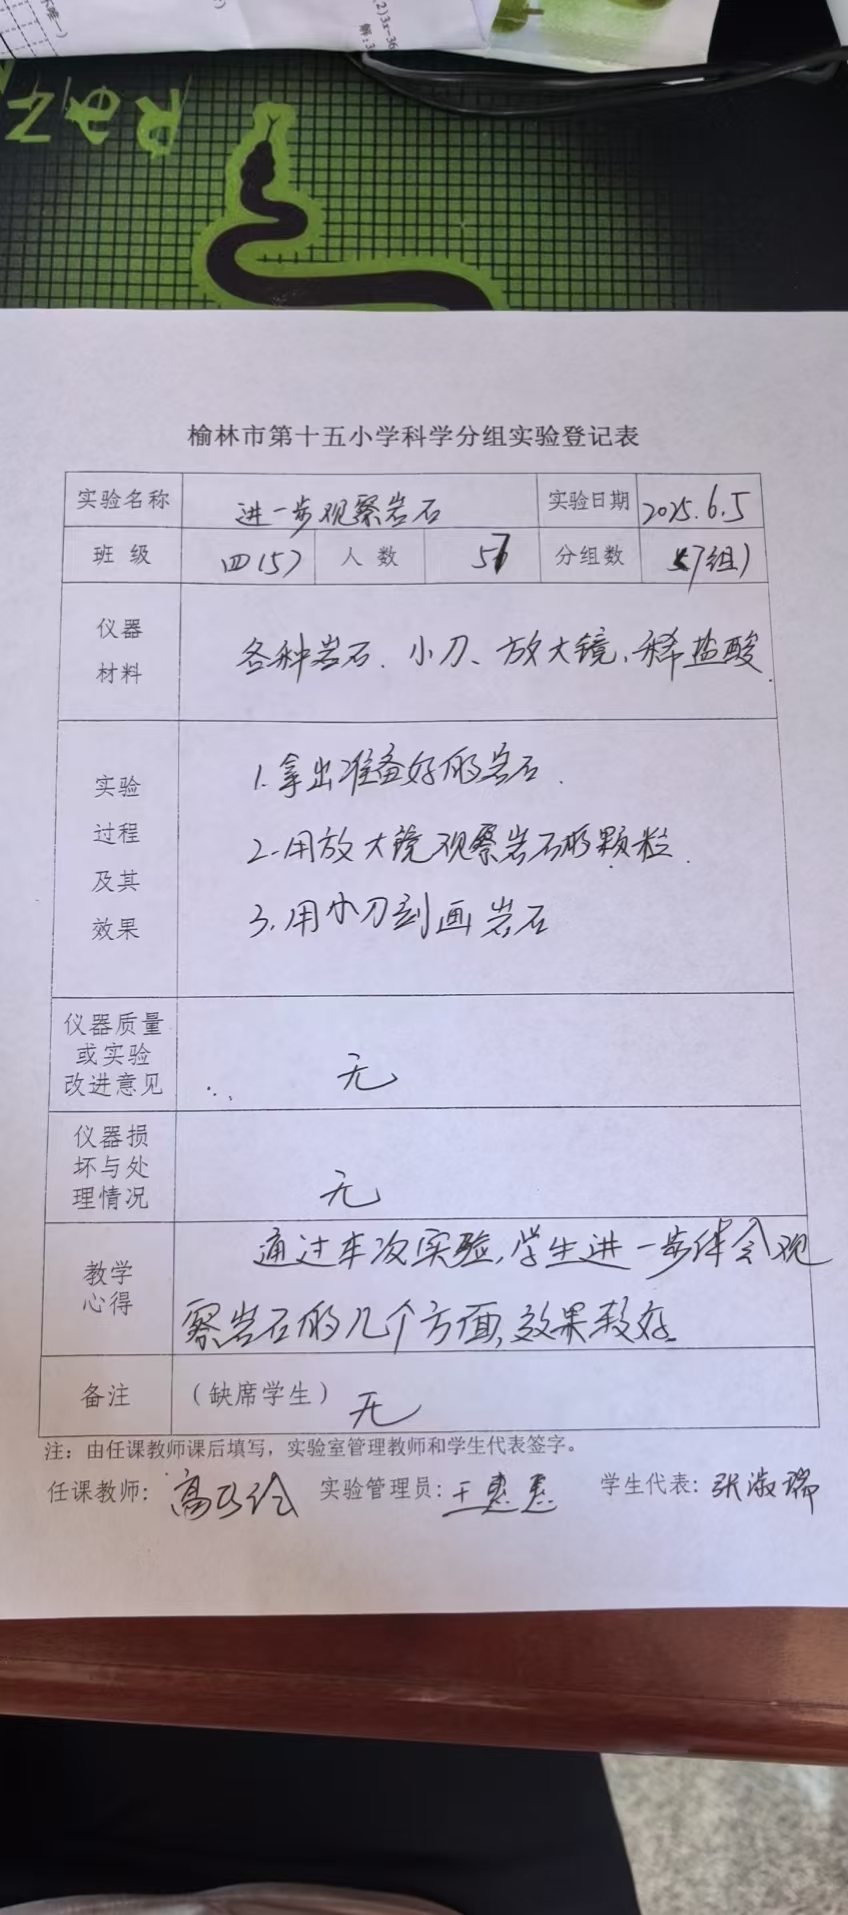 (2)3x-36
榆林市第十五小学科学分组实验登记表
实验名称 进一步观察岩石 实验日期 2025.6.5
班级 四(5) 人数 57 分组数 (7组)
仪器 材料 各种岩石、小刀、放大镜、稀盐酸.
实验 过程 及其 效果
1.拿出准备好的岩石.
2.用放大镜观察岩石的颗粒.
3.用小刀刻画岩石
仪器质量 或实验 改进意见 无
仪器损 坏与处 理情况 无
教学 心得
通过本次实验,学生进一步体会观
察岩石的几个方面,效果较好.
备注 (缺席学生) 无
注:由任课教师课后填写,实验室管理教师和学生代表签字。
任课教师: 高 实验管理员: 王惠惠 学生代表: 张淑瑞